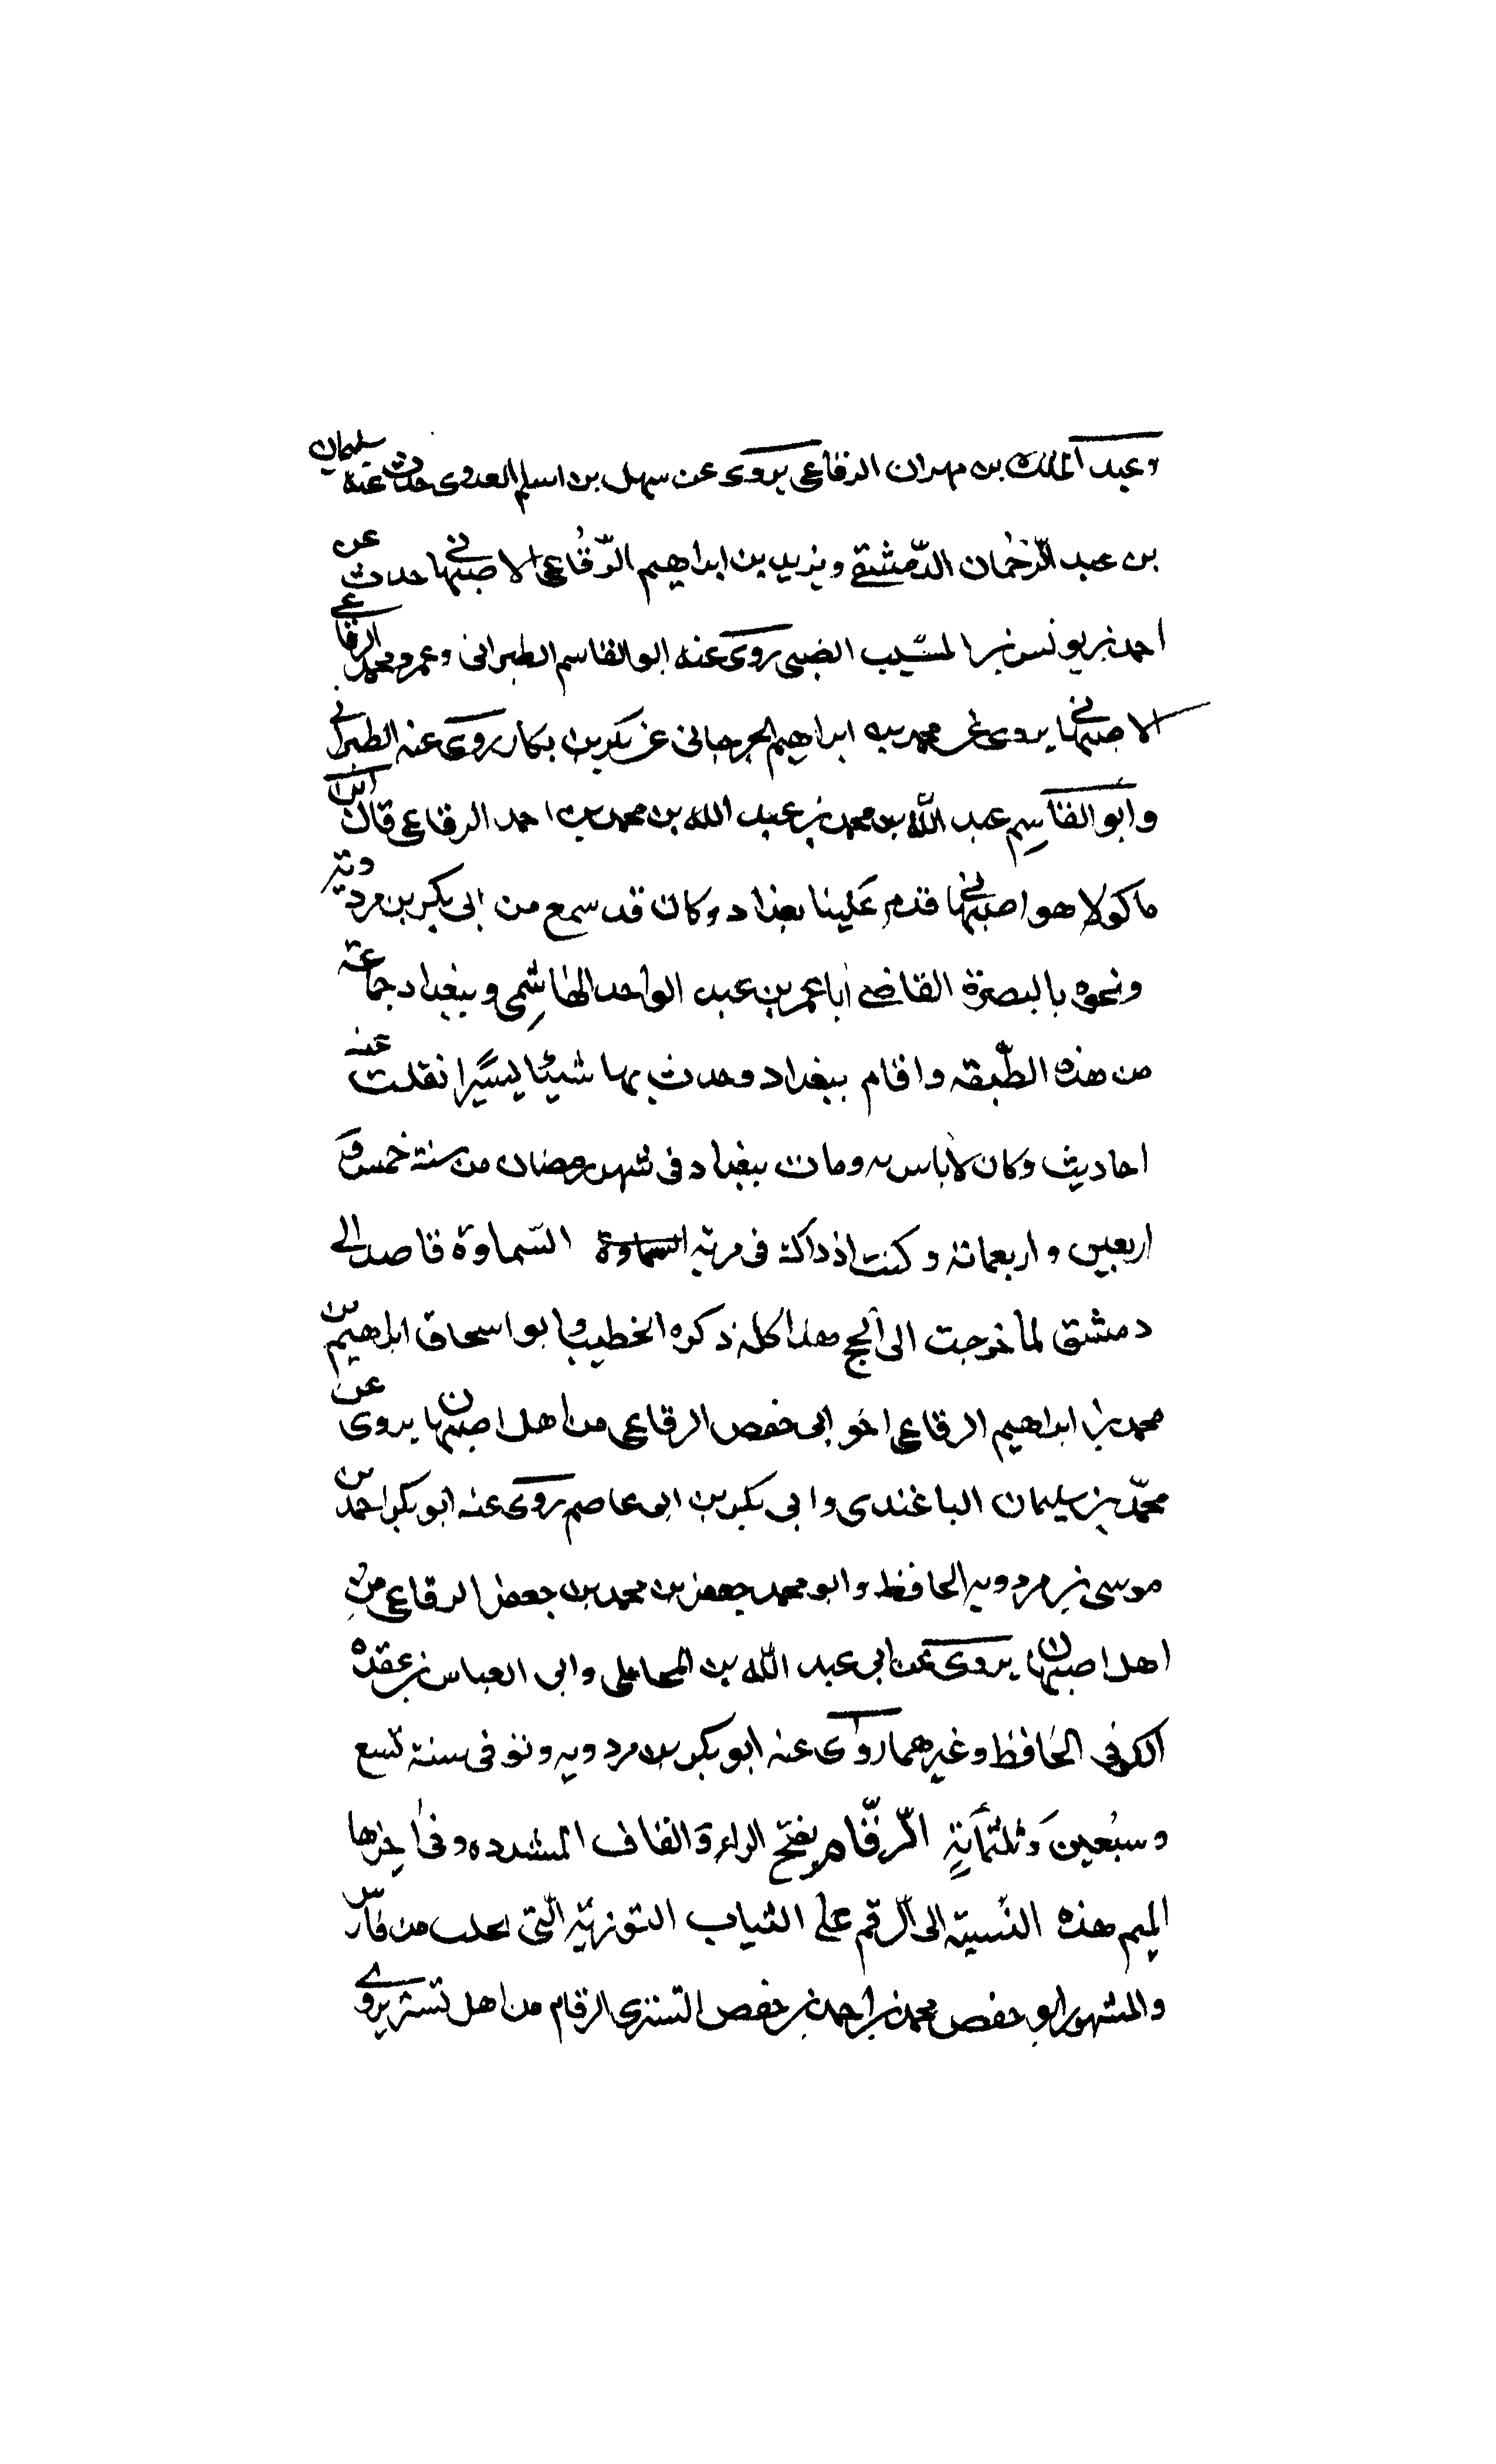 وعبد الملك بن مهران الرفاعى يروى عن سهل بن اسلم العدوى حدث عنه سليمان
بن عبد الرّحمان الدّمشقى ويزيد بن ابراهيم الرّقاعى الاصبهانى حدث عن
احمد بن يونس بن المسيّب الضبى روى عنه ابو القاسم الطبرانى وعمرو محمد الرقاعى
الاصبهانى يروى عن محمد بن ابراهيم الجرجانى عن بكر بن بكار روى عنه الطبرانى
وابو القاسِم عبد اللّه بن محمد بن عبد الله بن محمد بن احمد الرقاعى قال ابن
ماكولا هو اصبهانى قدم عَلينا بغداد وكان قد سمع من ابى بكر بن مردويه
ونحوه بالبصرة القاضى اباعمر بن عبد الواحد الهاشِمى وببغداد جماعة
من هذه الطّبقه واقام ببغداد وحدث بها شيئا يسيًرا نقلت عنه
احاديث وكان لاباس به ومات ببغداد فى شهر رمضان من سنة خمس و
اربعين واربعمائه وكنت اذ ذاك فى مرتبه السماوة السّماوة قاصد الى
دمشق لما خرجت الى الحج هذا كله ذكره الخطيب وابو اسحاق ابراهيم بن
محمد بن ابراهيم الرقاعى اخو ابى حفص الرقاعى من اهل اصبهان يروى عن
محمّد بن سليمان الباغندى وابى بكر بن ابى عاصم روى عنه ابو بكر احمد بن
موسى بن مردويه الحافظ وابو محمد جعفر بن محمد بن جعفر الرقاعى من
اهل اصبهان يروى عن ابى عبد اللّه بن المحاملى وابى العباس بن عقده
الكوفى الحافظ وغيرهما روى عنه ابو بكر بن مردويه وتوفى سنة تسع
وسبعين وَثلثمائةٍ الرّقّام بفتح الراء والقاف المشدده وفى اخِرها
الميم هذه النسبة الى الرّقم على الثياب التوزيّه الّتى تجلب من فارس
والمشهور ابو حفص محمد بن احمد بن حفص التسترى الرقام من اهل تستر يروى